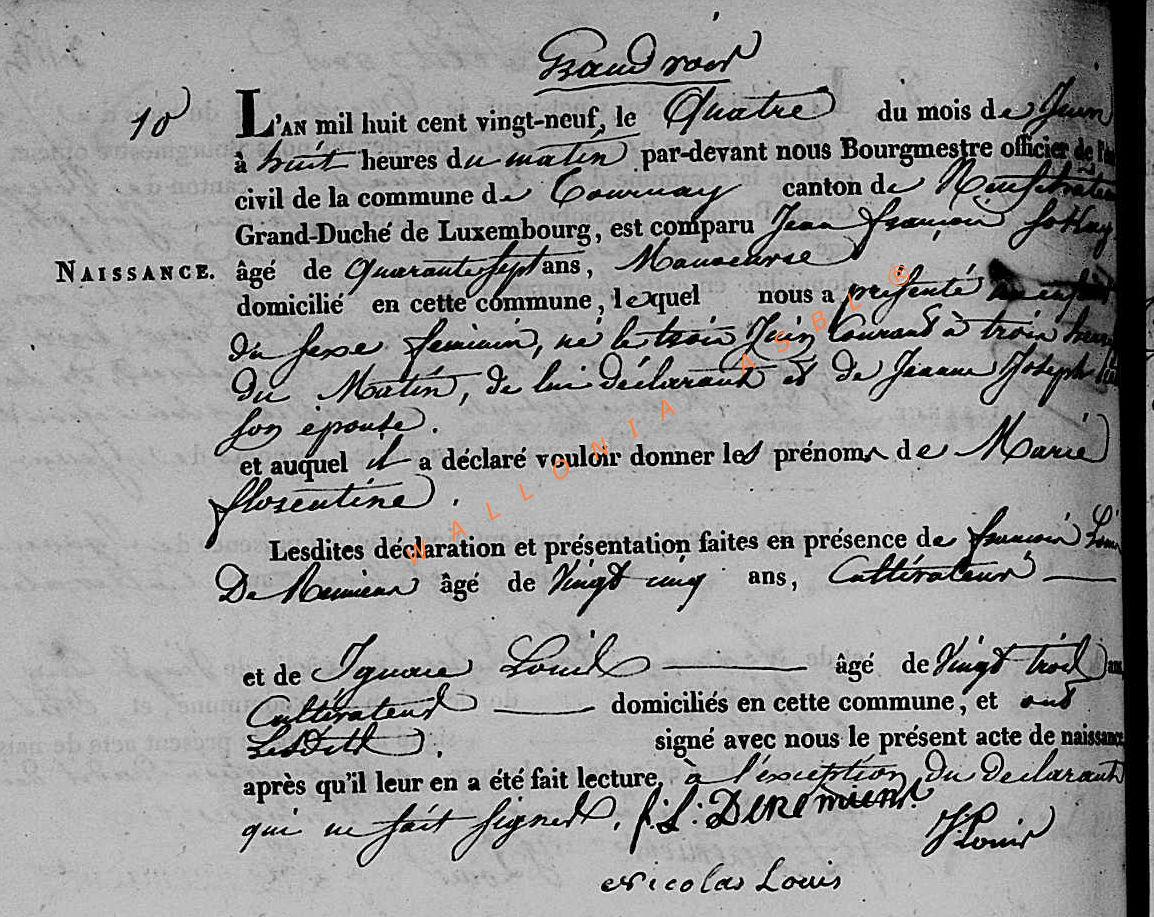 Grandvoir
10
L'AN mil huit cent vingt-neuf, le Quatre du mois de Juin
à huit heures du matin par-devant nous Bourgmestre officier de l'
civil de la commune de Tournay canton de Neufchateau
Grand-Duché de Luxembourg, est comparu Jean françois
NAISSANCE. âgé de Quarante sept ans, Manoeuvre
domicilié en cette commune, lequel nous a présenté un enfant
du sexe féminin, né le trois Juin Courant à trois heures
du Matin, de lui déclarant et de Jeanne Joseph
son épouse.
et auquel il a déclaré vouloir donner les prénoms de Marie
florentine.
Lesdites déclaration et présentation faites en présence de françois Louis
De Remiens âgé de Vingt cinq ans, Cultivateur
et de Ignace Louis âgé de Vingt trois ans
Cultivateur domiciliés en cette commune, et ont
Lesdits, signé avec nous le présent acte de naissance
après qu'il leur en a été fait lecture, à l'exception du déclarant
qui ne sait signer. f: L: DEREMIENS
J. Louis
Nicolas Louis
WALLONIA ASBL ©